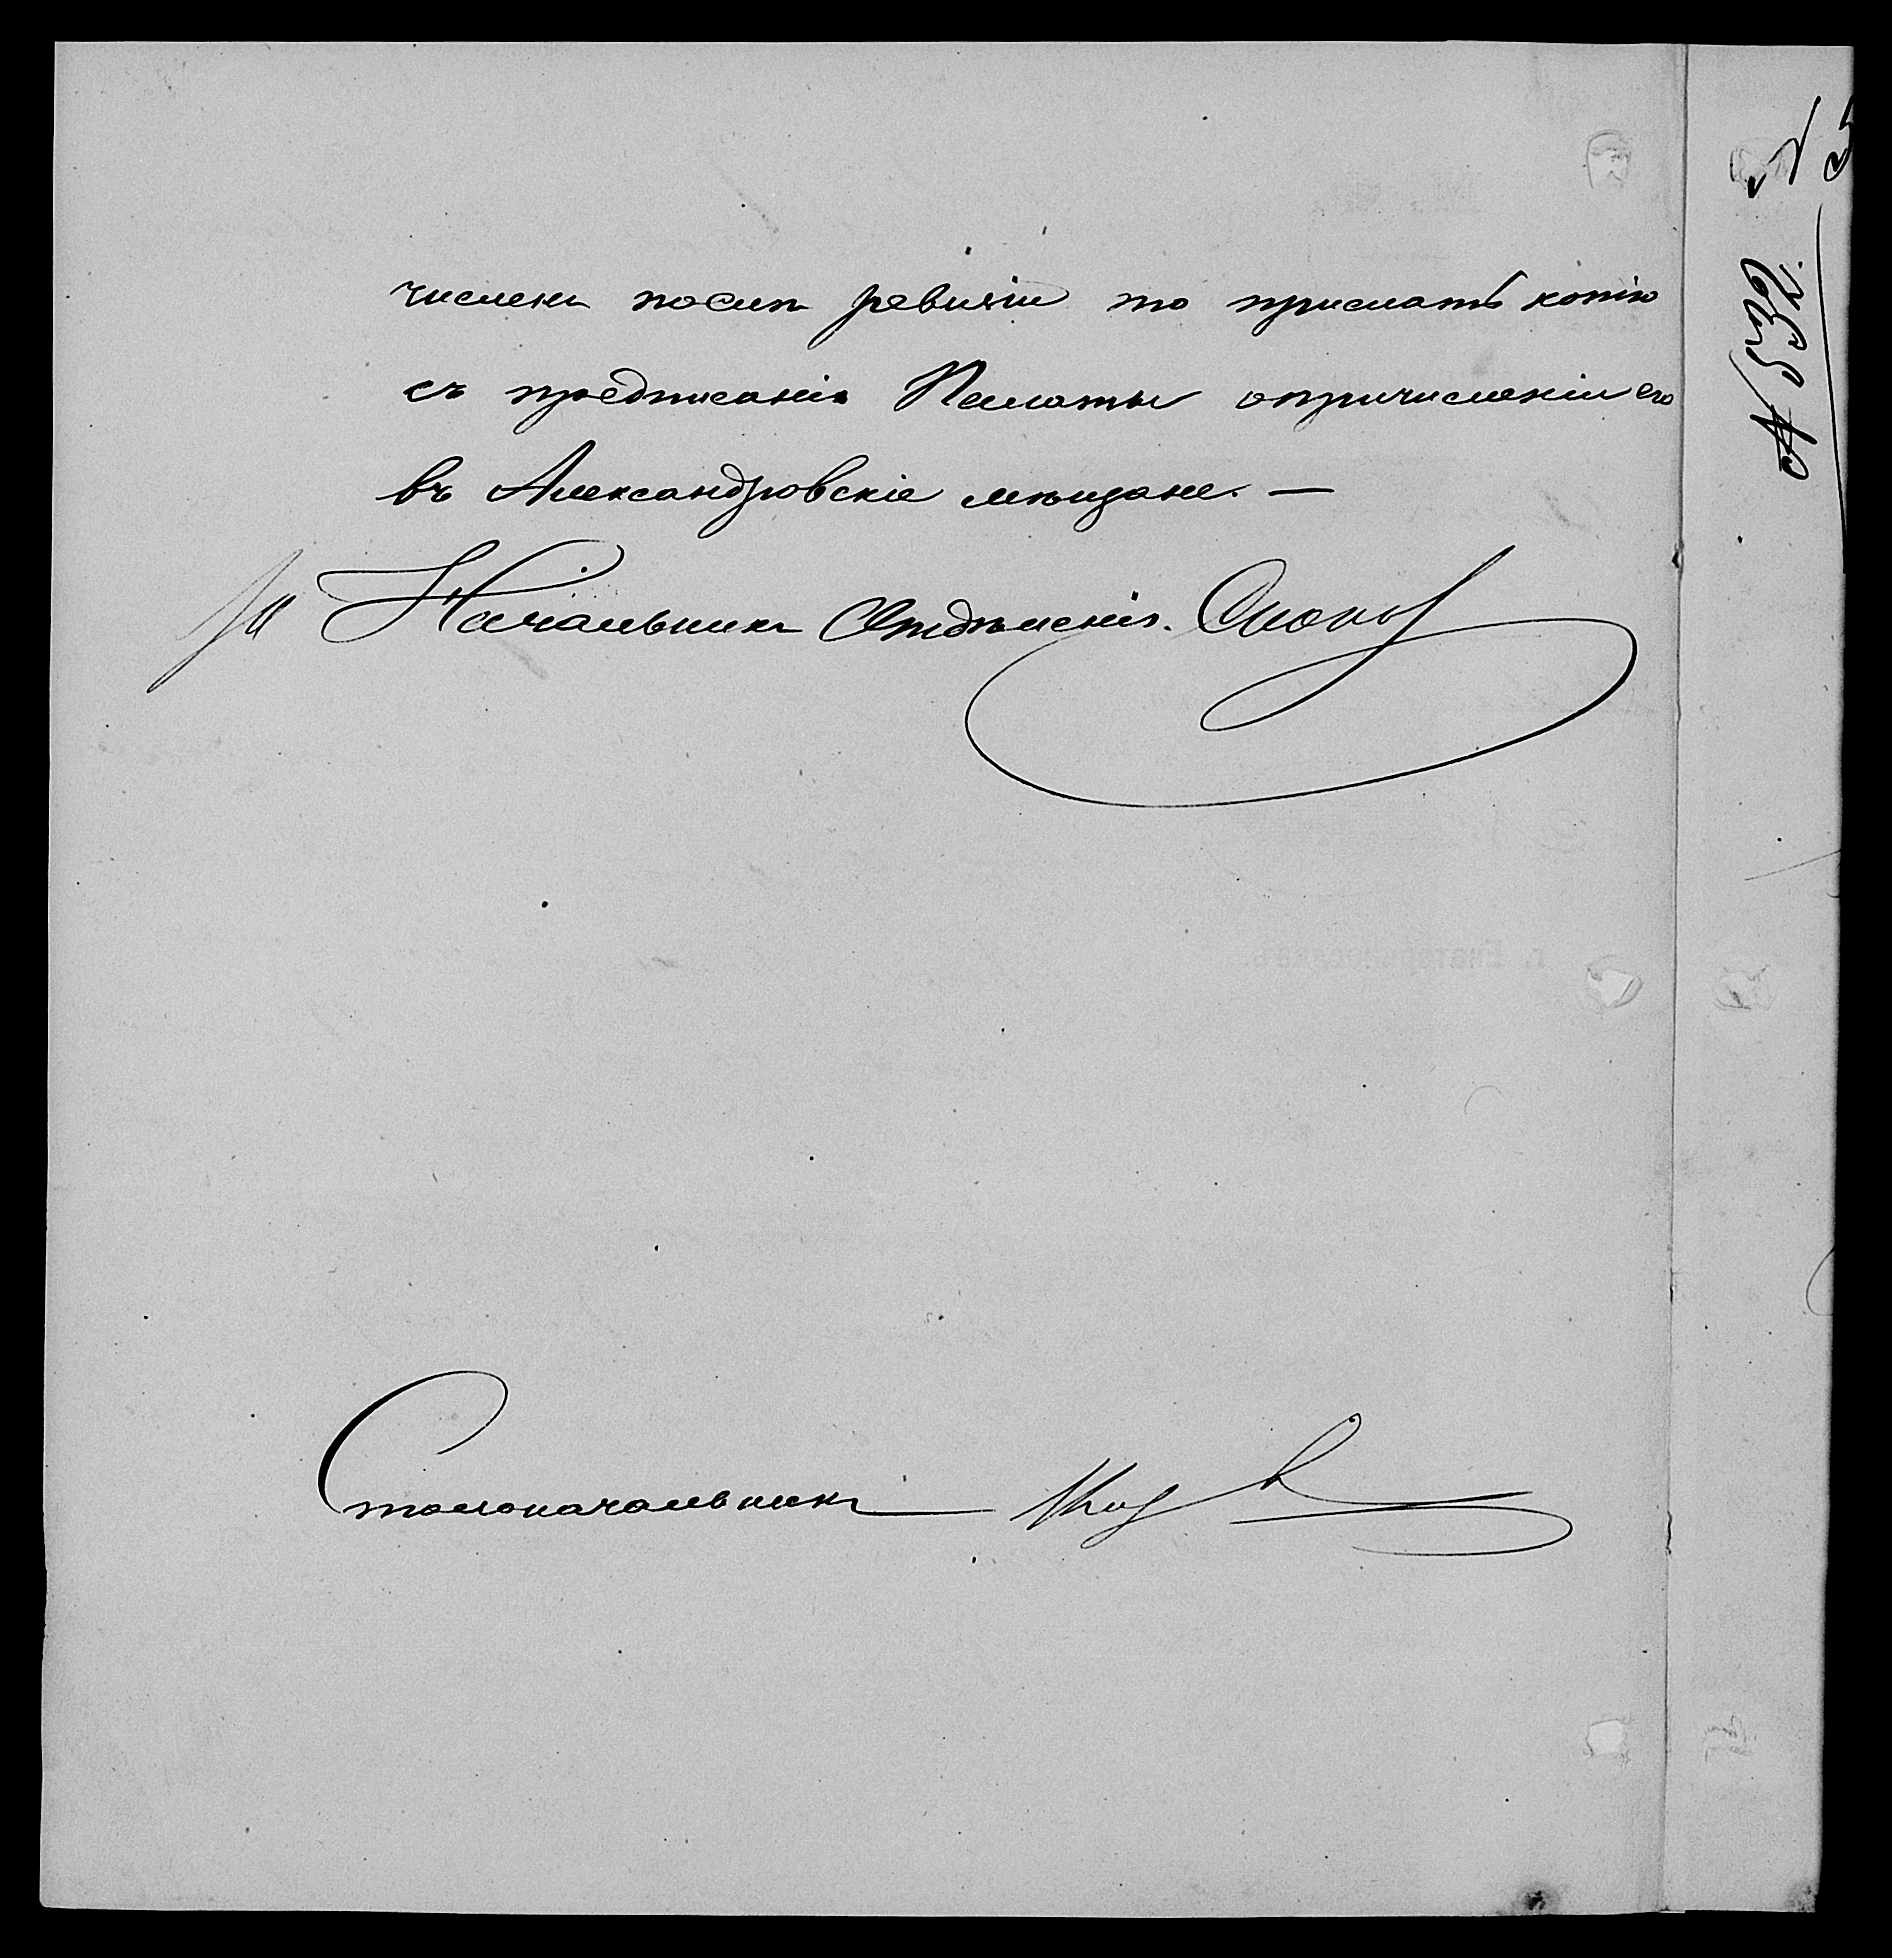 численъ послѣ ревизіи то прислать копію
съ предписанія Палаты опричисленіи его
въ Александровскіе мѣщане. —
за Начальникъ Отдѣленія.
Столоначальникъ